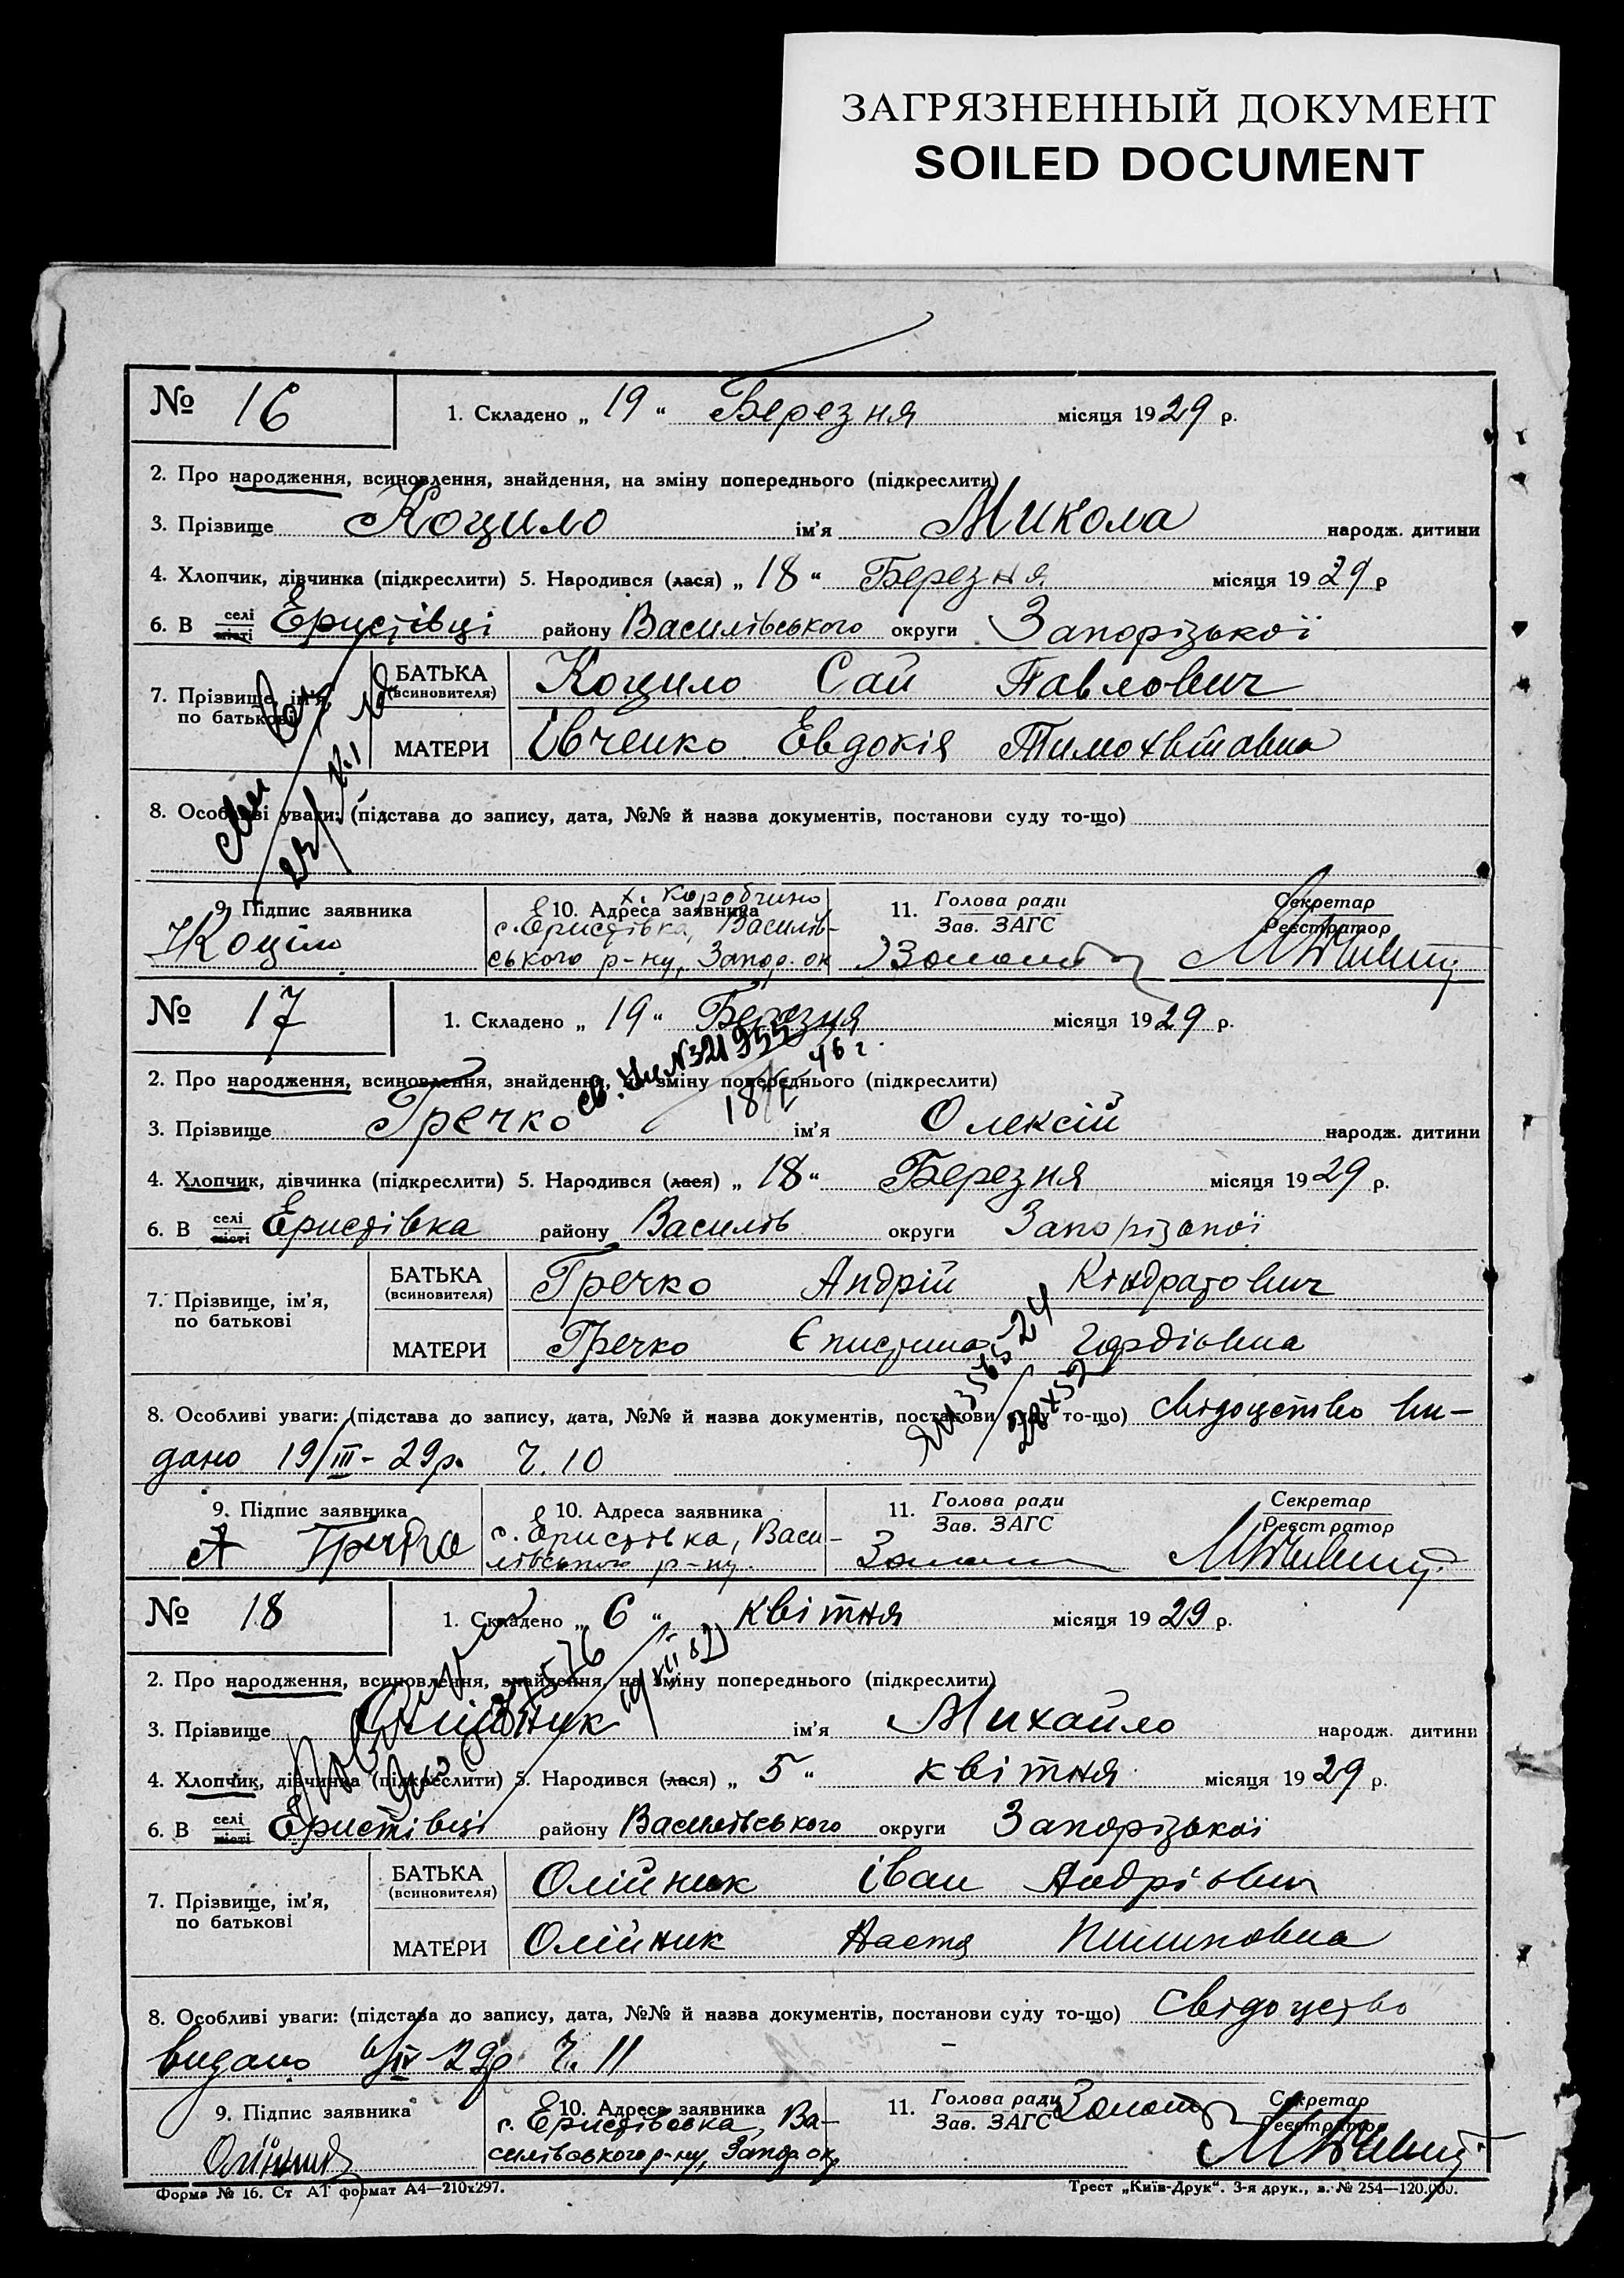 ЗАГРЯЗНЕННЫЙ ДОКУМЕНТ
SOILED DOCUMENT
№ 16
1. Складено „ 19 “ Березня місяця 1929 р.
2. Про народження, всиновлення, знайдення, на зміну попереднього (підкреслити)
3. Прізвище Коцило ім’я Микола народж. дитини
4. Хлопчик, дівчинка (підкреслити) 5. Народився (лася) „ 18 “ Березня місяця 1929 р
6. В селі місті Еристівці району Василівського округи Запорізької
7. Прізвище, ім’я, по батькові
БАТЬКА (всиновителя) Коцило Сай Павлович
МАТЕРИ Івченко Евдокія
8. Особливі уваги: (підстава до запису, дата, №№ й назва документів, постанови суду то-що)
9. Підпис заявника
10. Адреса заявника
х. Коробчино
с. Еристівка, Василів-
ського р-ну, Запор. ок
11. Голова ради
Зав. ЗАГС
Секретар
Реєстратор
№ 17
1. Складено „ 19 “ Березня місяця 1929 р.
св. № 321955
46 г.
2. Про народження, всиновлення, знайдення, на зміну попереднього (підкреслити)
3. Прізвище Гречко ім’я Олексій народж. дитини
4. Хлопчик, дівчинка (підкреслити) 5. Народився (лася) „ 18 “ Березня місяця 1929 р.
6. В селі місті Еристівка району Василів округи
7. Прізвище, ім’я, по батькові
БАТЬКА (всиновителя) Гречко Андрій Кіндратович
МАТЕРИ Гречко Єпистина Гордіовна
8. Особливі уваги: (підстава до запису, дата, №№ й назва документів, постанови суду то-що) свідоцтво ви-
дано 19/III - 29р. Ч. 10
9. Підпис заявника
10. Адреса заявника
с. Еристівка, Васи-
лівського р-ну.
11. Голова ради
Зав. ЗАГС
Секретар
Реєстратор
№ 18
1. Складено „ 6 “ квітня місяця 1929 р.
2. Про народження, всиновлення, знайдення, на зміну попереднього (підкреслити)
3. Прізвище Олійник ім’я Михайло народж. дитини
4. Хлопчик, дівчинка (підкреслити) 5. Народився (лася) „ 5 “ квітня місяця 1929 р.
6. В селі місті Еристівці району Василівського округи Запорізької
7. Прізвище, ім’я, по батькові
БАТЬКА (всиновителя) Олійник Іван Андріович
МАТЕРИ Олійник Настя Пилиповна
8. Особливі уваги: (підстава до запису, дата, №№ й назва документів, постанови суду то-що) свідоцтво
видано 6/IV - 29р Ч. 11
9. Підпис заявника
10. Адреса заявника
Ва-
силівського р-ну, Запор ок
11. Голова ради
Зав. ЗАГС
Секретар
Реєстратор
Форма № 16. Ст АТ формат А4—210х297.
Трест „Київ-Друк“. 3-я друк., з. № 254—120.000.